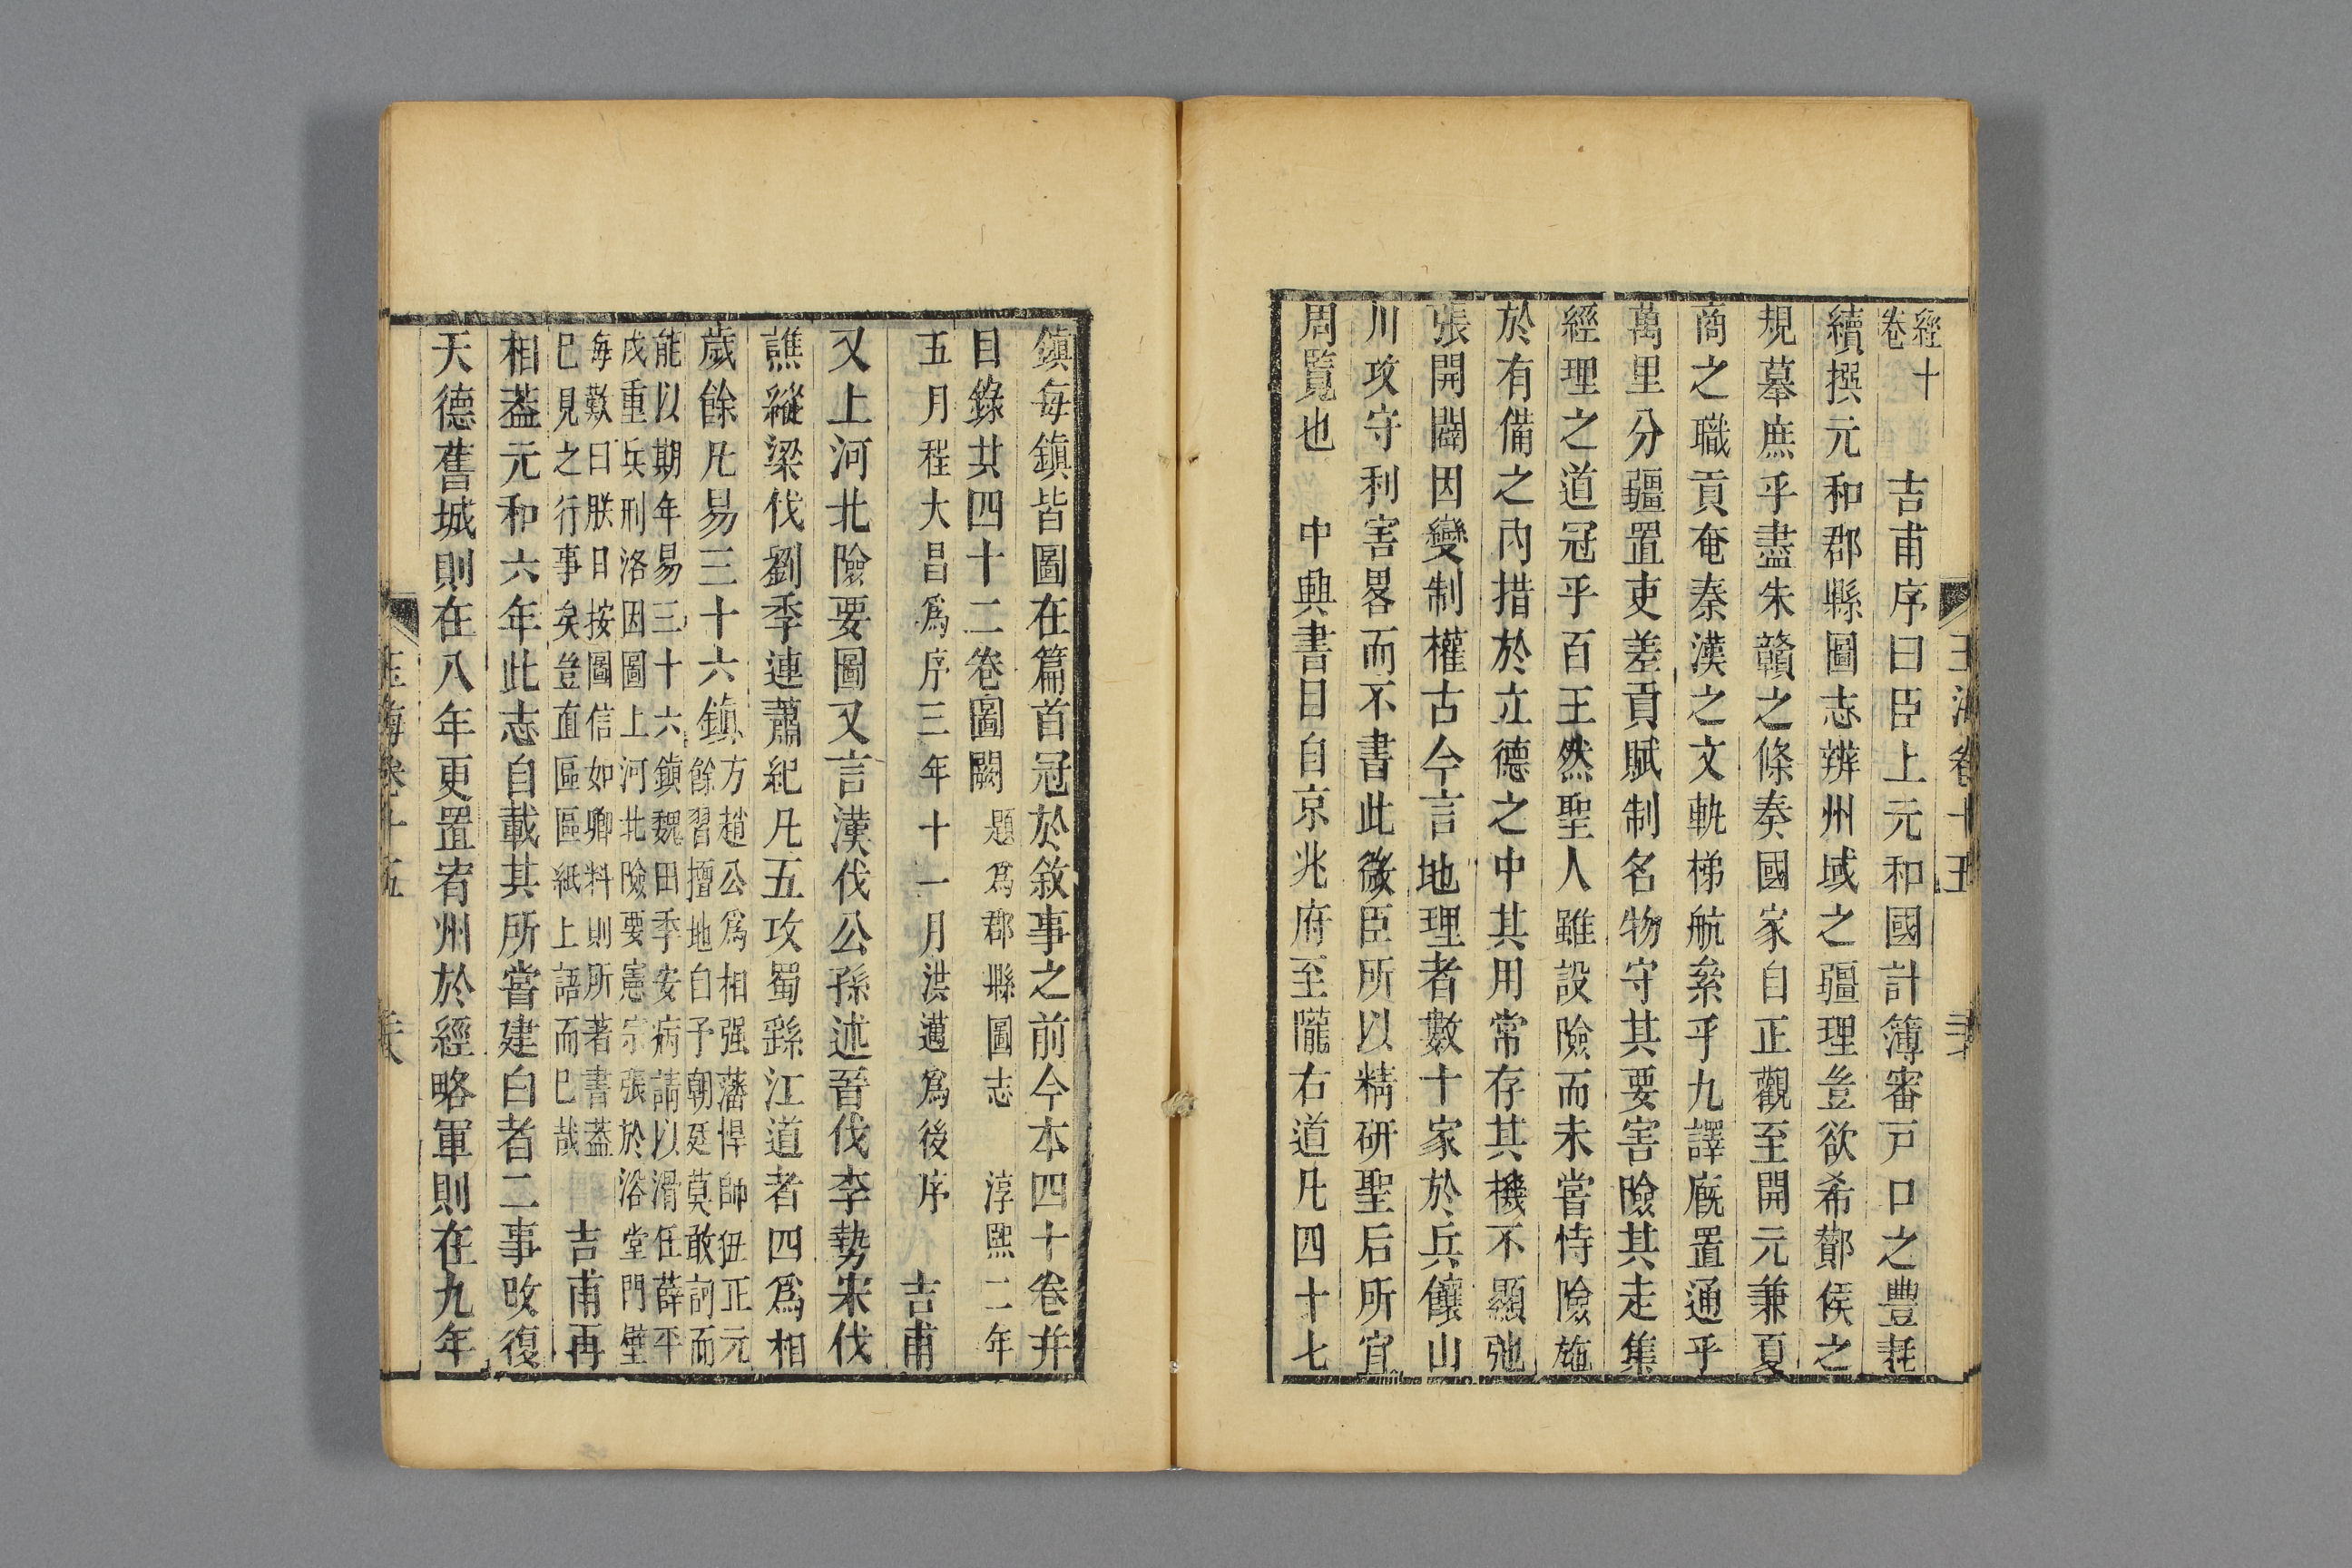 玉海卷十五
經十
卷
吉甫序曰臣上元和國計簿審戸口之豊耗
續撰元和郡縣圖志辨州域之疆理豈欲希酇侯之
規摹庶乎盡朱贛之條奏國家自正觀至開元兼夏
商之職貢奄秦漢之文軌梯航絫乎九譯廐置通乎
萬里分疆置吏差貢賦制名物守其要害險其走集
經理之道冠乎百王然聖人雖設險而未嘗恃險施
於有備之内措於立德之中其用常存其機不顯弛
張開闔因變制權古今言地理者數十家於兵儴山
川攻守利害畧而不書此微臣所以精研聖后所宜
周覧也 中興書目自京兆府至隴右道凡四十七
鎮每鎮皆圖在篇首冠於敘事之前今本四十卷并
目錄共四十二卷圖闕
題爲郡縣圖志 淳熙二年
五月程大昌爲序三年十一月洪邁爲後序
吉甫
又上河北險要圖又言漢伐公孫述晉伐李勢宋伐
譙縱梁伐劉季連蕭紀凡五攻蜀繇江道者四爲相
歲餘凡易三十六鎮
方趙公爲相强藩悍帥伍正元
餘習擅地自予朝廷莫敢訶而
能以期年易三十六鎮魏田季安病請以滑任薛平
戍重兵刑洛因圖上河北險要憲宗張於浴堂門壁
每歎曰朕日按圖信如卿料則所著書葢
巳見之行事矣豈直區區紙上語而巳哉
吉甫再
相葢元和六年此志自載其所嘗建白者二事攺復
天德舊城則在八年更置宥州於經略軍則在九年
玉海卷十五